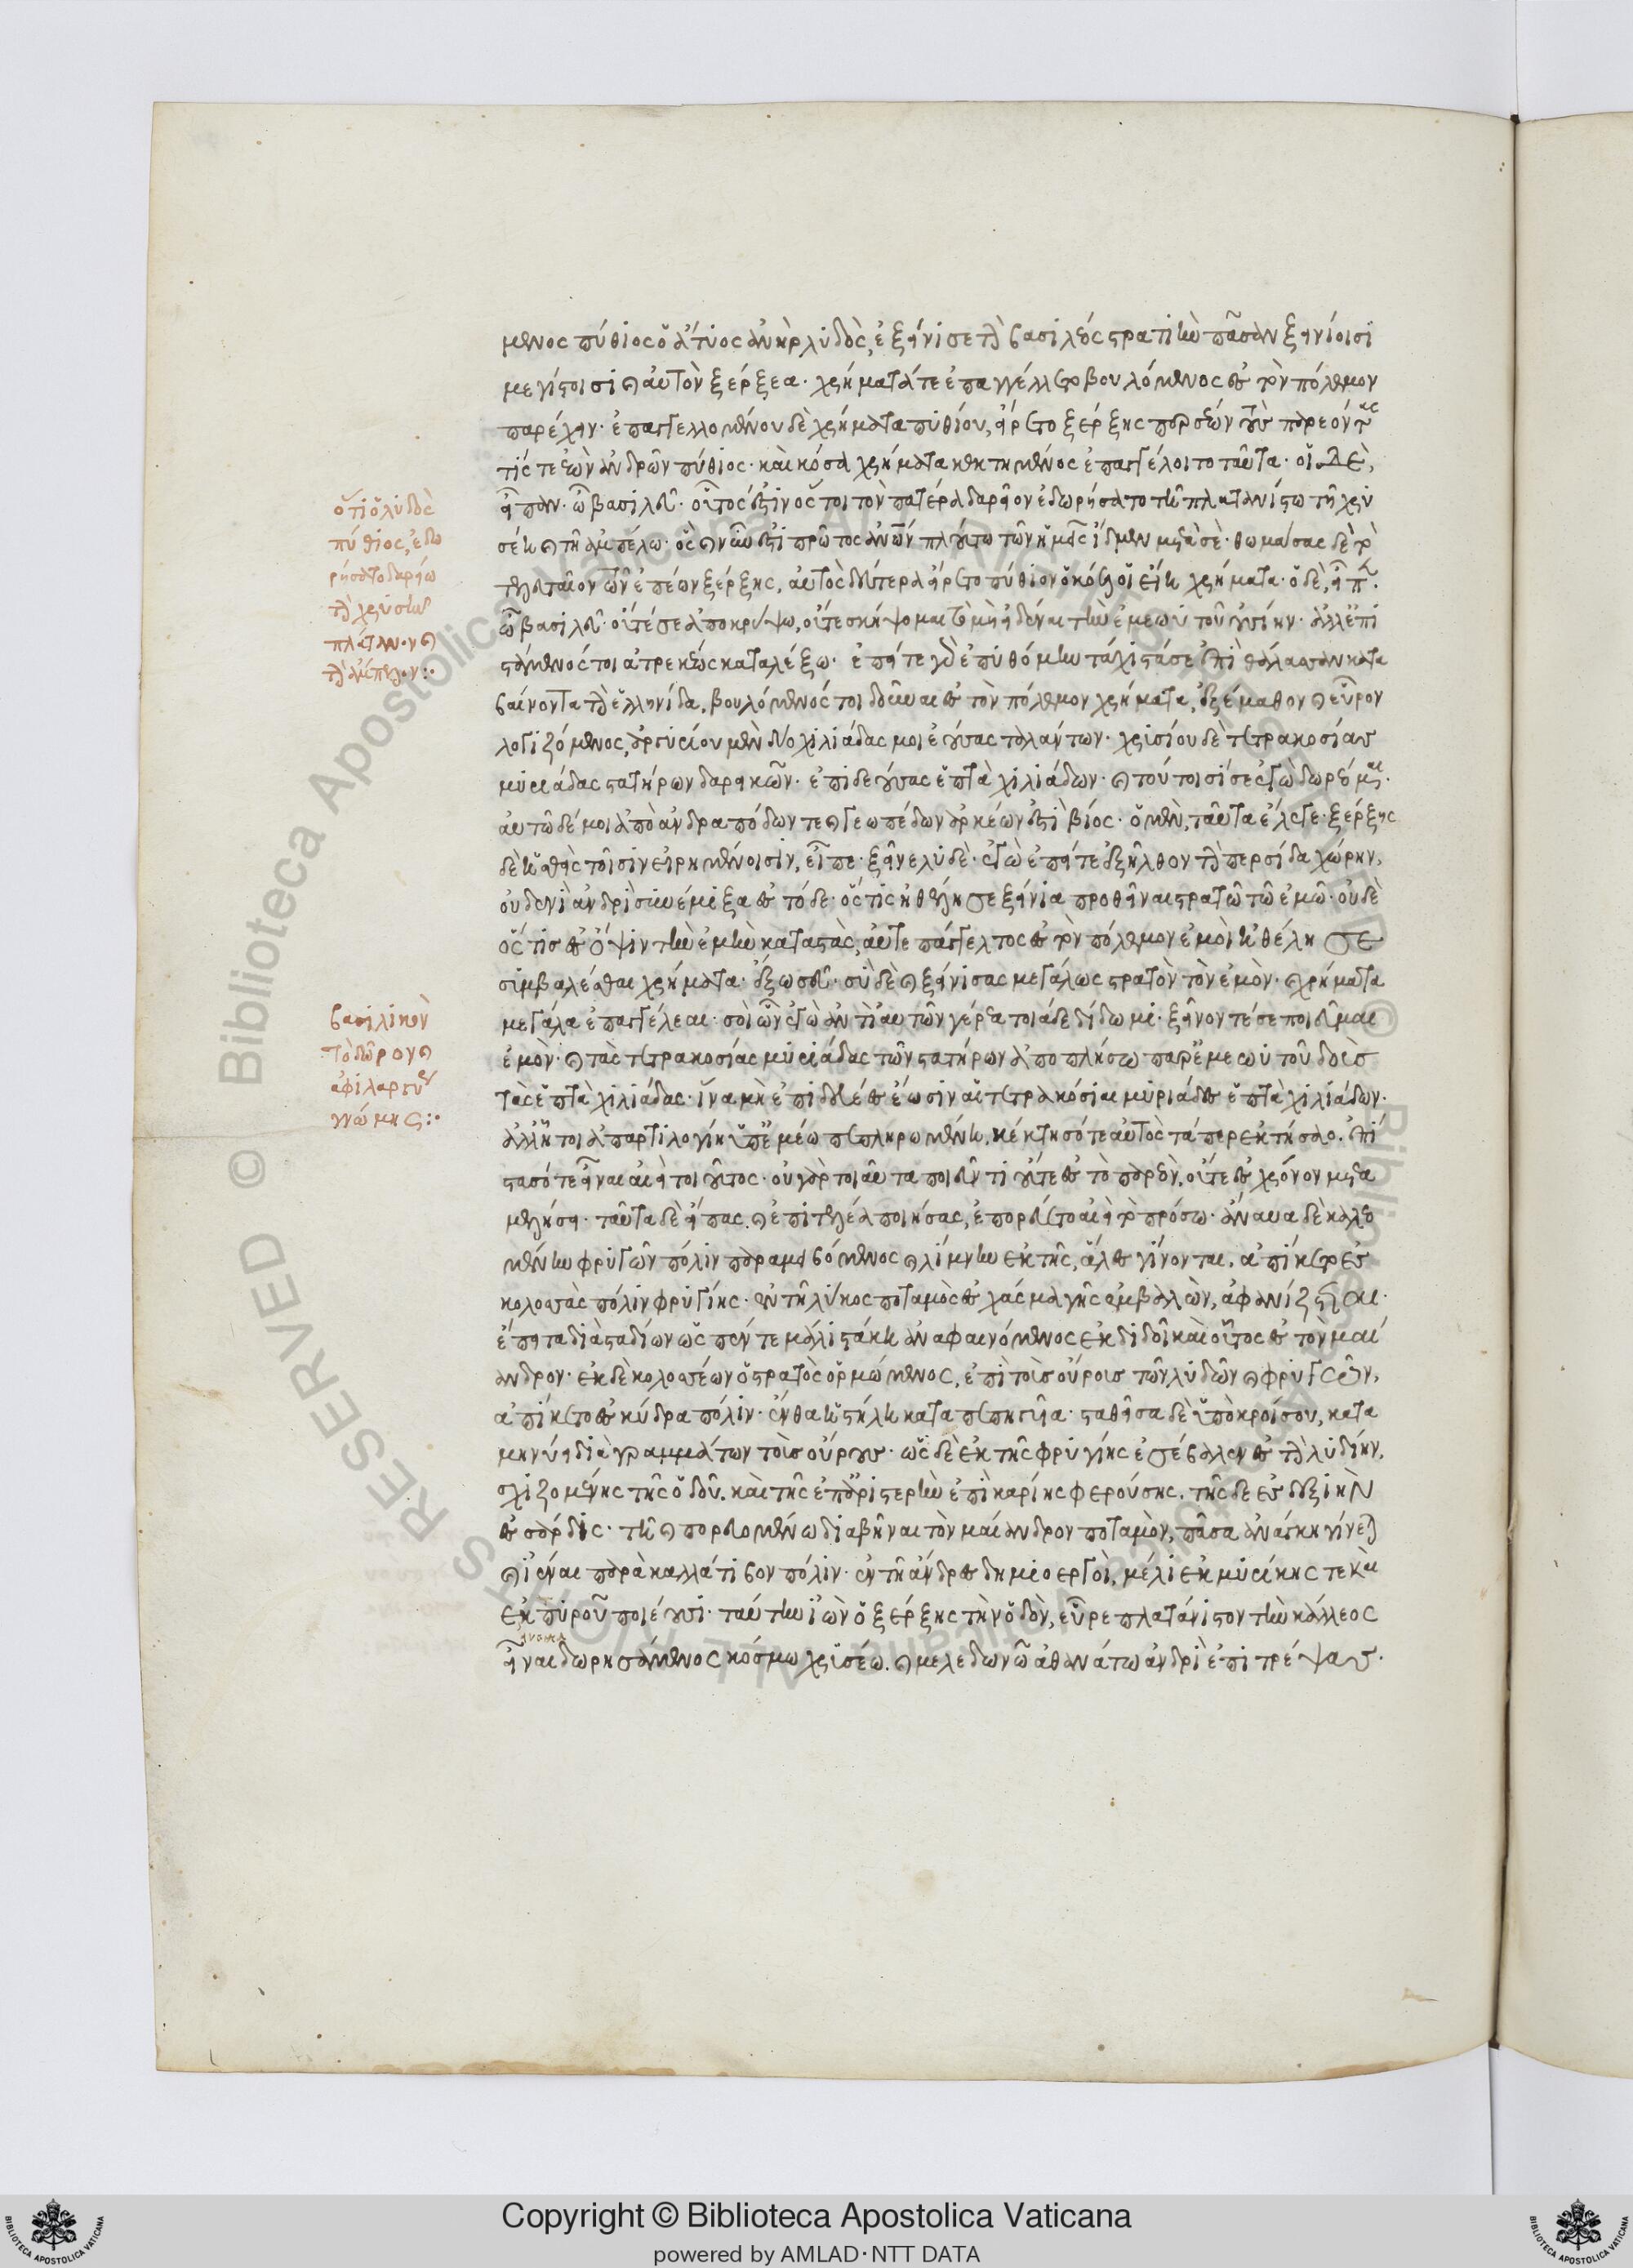 μενος πύθιος ὁ ἄτυος ἀνὴρ λυδὸς, ἐξείνισε τὴν βασιλέος στρατιὴν πᾶσαν ξεινίοισι
μεγίστοισι καὶ αὐτὸν ξέρξεα· χρήματά τε ἐπαγγέλλετο βουλόμενος ἐς τὸν πόλεμον
παρέχειν· ἐπαγγελλομένου δὲ χρήματα πυθίου, εἴρετο ξέρξης περσέων τοὺς παρεόντας
τίς τε ἐὼν ἀνδρῶν πύθιος· καὶ κόσα χρήματα κεκτημένος ἐπαγγέλοιτο ταῦτα· οἱ δὲ,
εἶπαν· ὦ βασιλεῦ· οὗτός ἐστιν ὅς τοι τὸν πατέρα δαρεῖον ἐδωρήσατο τῇ πλατανίστω τῇ χρυ
σέη καὶ τῇ ἀμπέλω· ὃς καὶ νῦν ἐστι πρῶτος ἀνθρώπων πλούτω τῶν ἡμεῖς ἴδμεν μετὰ σὲ· θωμάσας δὲ τὸ
τελευταῖον τῶν ἐπέων ξέρξης, αὐτὸς δεύτερα εἴρετο πύθιον ὁκόσα οἱ εἴη χρήματα· ὁ δὲ, εἶπε·
ὦ βασιλεῦ· οὔτέ σε ἀποκρύψω, οὔτε σκήψομαι τὸ μὴ εἰδέναι τὴν ἐμεωυτοῦ οὐσίην· ἀλλ' ἐπι
στάμενός τοι ἀτρεκέως καταλέξω· ἐπείτε γὰρ ἐπυθόμην τάχιστά σε ἐπὶ θάλασσαν κατα
βαίνοντα τὴν ἑλληνίδα, βουλόμενός τοι δοῦναι ἐς τὸν πόλεμον χρήματα, ἐξέμαθον καὶ εὗρον
λογιζόμενος, ἀργυρίου μὲν δύο χιλιάδας μοι ἐούσας ταλάντων· χρυσίου δὲ τετρακοσίας
μυριάδας στατήρων δαρεικῶν· ἐπιδεούσας ἑπτὰ χιλιάδων· καὶ τούτοισί σε ἐγὼ δωρέομαι·
αὐτῶ δέ μοι ἀπὸ ἀνδραπόδων τε καὶ γεωπέδων ἀρκέων ἐστὶ βίος· ὁ μὲν, ταῦτα ἔλεγε· ξέρξης
δὲ ἡσθεὶς τοῖσιν εἰρημένοισιν, εἶπε· ξεῖνε λυδὲ· ἐγὼ ἐπείτε ἐξῆλθον τὴν περσίδα χώρην,
οὐδενὶ ἀνδρὶ συνέμιξα ἐς τόδε· ὅς τις ἠθέλησε ξείνια προθεῖναι στρατῶ τῶ ἐμῶ· οὐδὲ
ὅς τις ἐς ὄψιν τὴν ἐμὴν καταστὰς, αὐτεπάγγελτος ἐς τὸν πόλεμον ἐμοὶ ἠθέλησε
συμβαλέσθαι χρήματα· ἔξω σεῦ· σὺ δὲ καὶ ξείνισας μεγάλως στρατὸν τὸν ἐμὸν· καὶ χρήματα
μεγάλα ἐπαγγέλεαι· σοὶ ὦν ἐγὼ ἀντὶ αὐτῶν γέρεα τοιάδε δίδωμι· ξεῖνον τέ σε ποιεῦμαι
ἐμὸν· καὶ τὰς τετρακοσίας μυριάδας τῶν στατήρων ἀποπλήσω παρ' ἐμεωυτοῦ δοὺς
τὰς ἑπτὰ χιλιάδας· ἵνα μὴ ἐπιδεέες ἔωσιν αἱ τετρακόσιαι μυριάδες ἑπτὰ χιλιάδων·
ἀλλ' ἦ τοι ἀπαρτιλογίη ὑπ' ἐμέω πεπληρωμένη, κέκτησό τε αὐτὸς τά περ ἐκτήσαο· ἐπί
στασό τε εἶναι αἰεὶ τοιοῦτος· οὐ γάρ τοι ταῦτα ποιεῦντι οὔτε ἐς τὸ παρεὸν, οὔτε ἐς χρόνον μετα
μελήσει· ταῦτα δὲ εἴπας. καὶ ἐπιτελέα ποιήσας, ἐπορεύετο αἰεὶ τὸ πρόσω· ἄναυα δὲ καλεο
μένην φρυγῶν πόλιν παραμειβόμενος καὶ λίμνην ἐκ τῆς, ἅλες γίνονται, ἀπίκετο ἐς
κολοσσὰς πόλιν φρυγίης· ἐν τῇ λύκος ποταμὸς ἐς χάσμα γῆς ἐμβαλὼν, ἀφανίζεται·
ἔπειτα διὰ σταδίων ὡς πέντε μάλιστά κη ἀναφαινόμενος ἐκδιδοῖ καὶ οὗτος ἐς τὸν μαί
ανδρον· ἐκ δὲ κολοσσέων ὁ στρατὸς ὁρμώμενος, ἐπὶ τοὺς οὔρους τῶν λυδῶν καὶ φρυγῶν,
ἀπίκετο ἐς κύδρα πόλιν· ἔνθα ἡ στήλη καταπεπηγυῖα· σταθεῖσα δὲ ὑπὸ κροίσου, κατα
μηνύει διὰ γραμμάτων τοὺς οὔρους· ὡς δὲ ἐκ τῆς φρυγίης ἐσέβαλεν ἐς τὴν λυδίην,
σχιζομένης τῆς ὁδοῦ. καὶ τῆς ἐπ' ἀριστερὴν ἐπὶ καρίης φερούσης. τῆς δὲ ἐς δεξιὴν
ἐς σάρδις· τῇ καὶ πορευομένω διαβῆναι τὸν μαίανδρον ποταμὸν, πᾶσα ἀνάγκη γίνεται
καὶ ἰέναι παρὰ καλλάτιβον πόλιν· ἐν τῇ ἄνδρες δημιοεργοὶ, μέλι ἐκ μυρίκης τε καὶ
ἐκ πυροῦ ποιέουσι· ταύτην ἰὼν ὁ ξέρξης τὴν ὁδὸν, εὗρε πλατάνιστον τὴν κάλλεος
εἵνεκα
εἶναι δωρησάμενος κόσμω χρυσέω. καὶ μελεδωνῶ ἀθανάτω ἀνδρὶ ἐπιτρέψας·
ὅτι ὁ λυδὸς
πύθιος, ἐδω
ρήσατο δαρείω
τὴν χρυσῆν
πλάτανον καὶ
τὴν ἄμπελον:·
βασιλικὸν
τὸ δῶρον καὶ
ἀφιλαργύρου
γνώμης:·
Copyright © Biblioteca Apostolica Vaticana
powered by AMLAD·NTT DATA